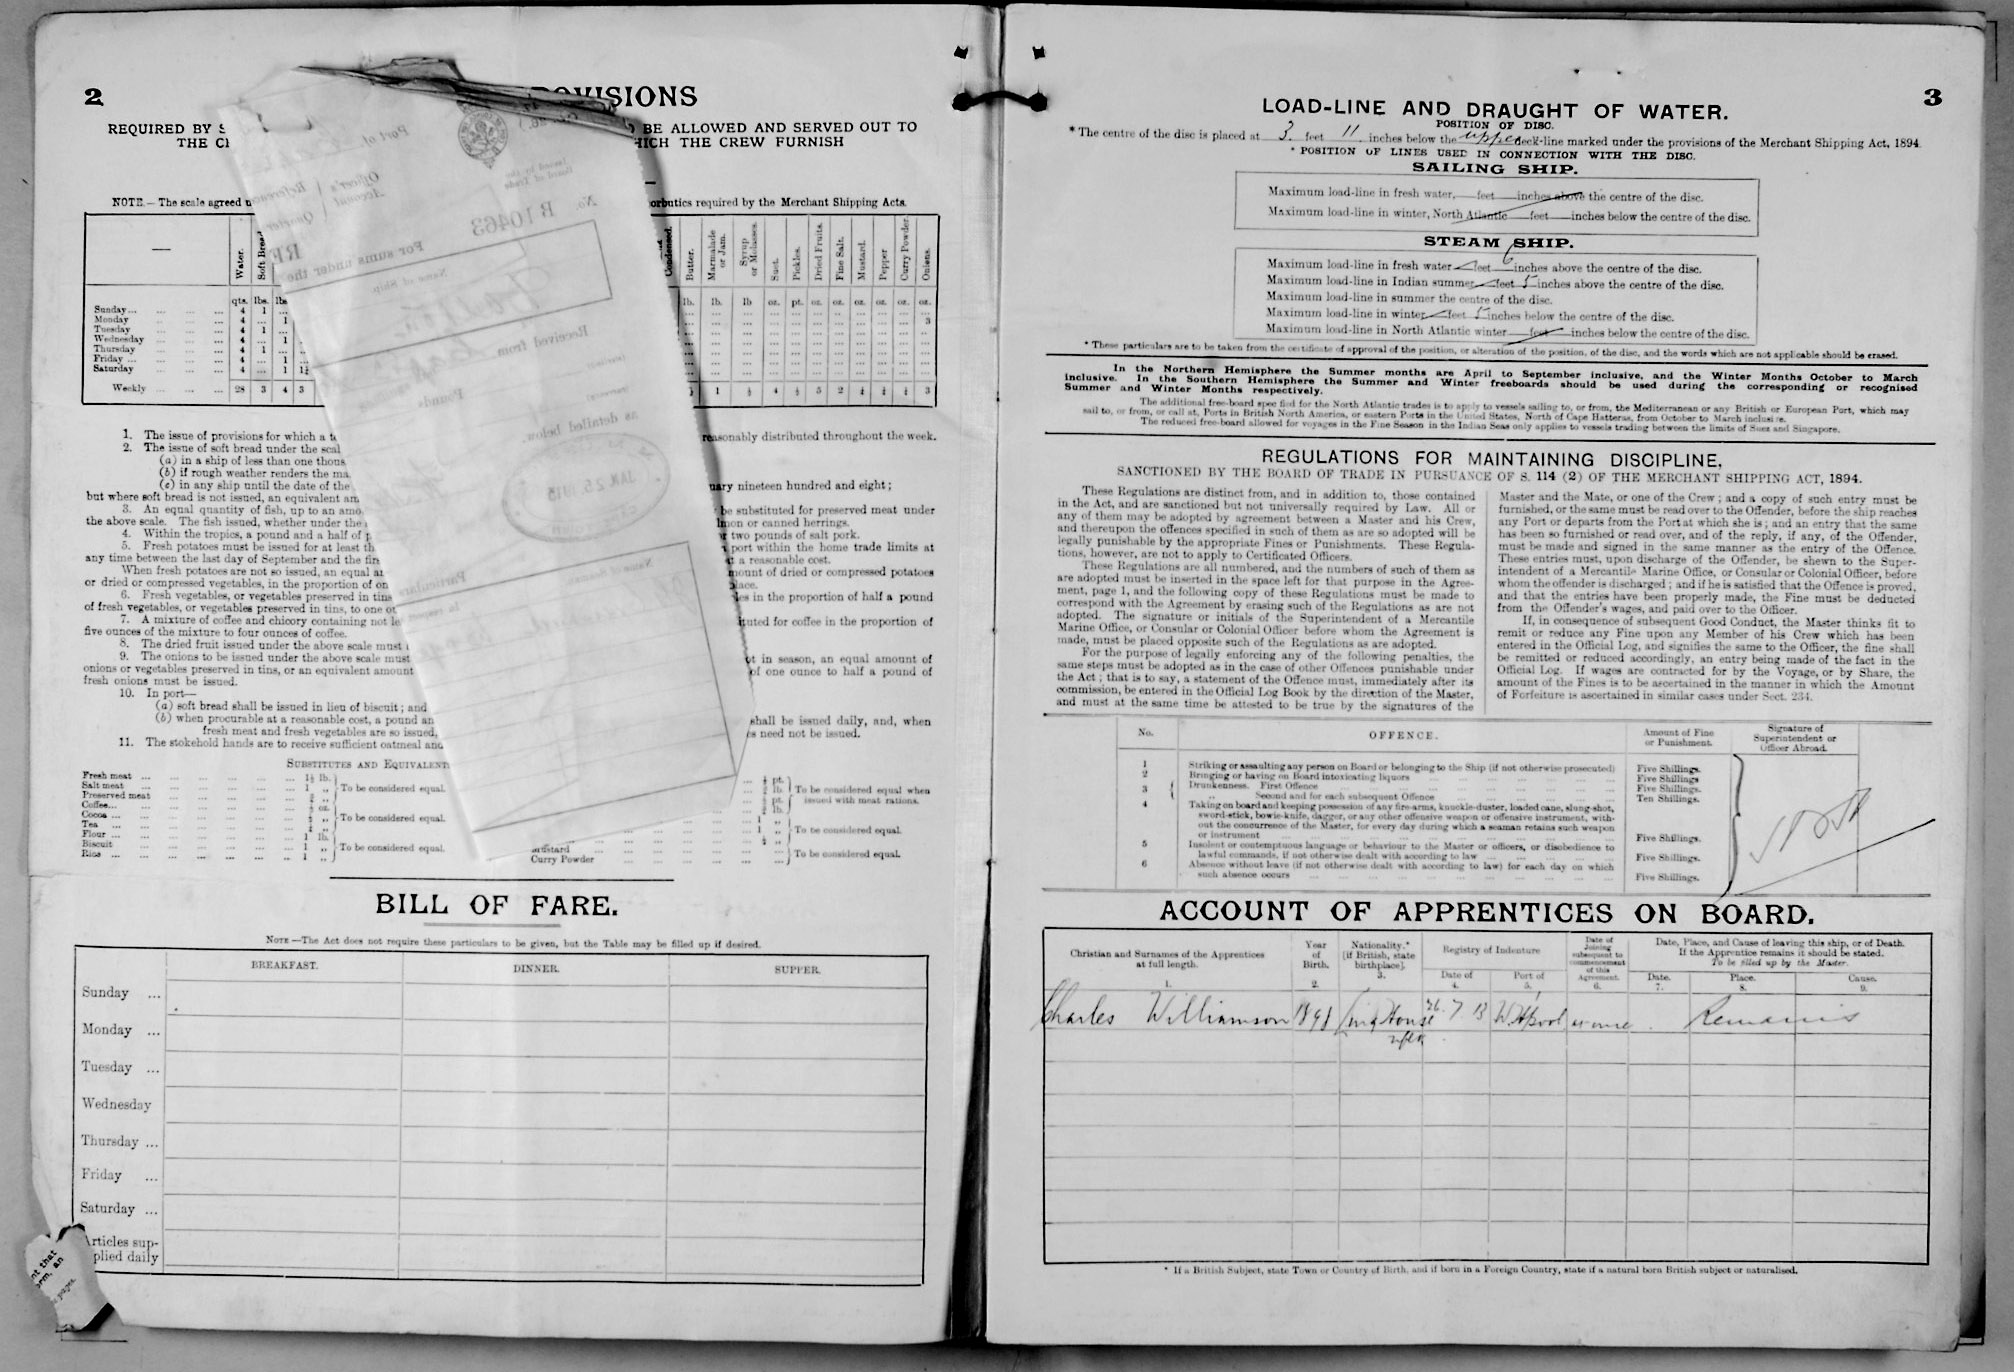 2
PROVISIONS
REQUIRED BY S
BE ALLOWED AND SERVED OUT TO
THE C
HICH THE CREW FURNISH
NOTE.—The scale agreed
orbutics required by the Merchant Shipping Acts.
Water. Soft Bread Condensed. Butter. Marmalade or Jam. Syrup or Molasses. Suet. Pickles. Dried Fruits. Fine Salt. Mustard. Pepper Curry Powder. Onions.
qts. lbs. lbs. lb. lb. lb oz. pt. oz. oz. oz. oz. oz. oz.
Sunday... 4 1 ...
Monday 4 ... 1 3
Tuesday 4 1 ...
Wednesday 4 ... 1
Thursday 4 1 ...
Friday ... 4 ... 1
Saturday 4 ... 1 1½
Weekly 28 3 4 3 1 ½ 4 ½ 5 2 ¼ ¼ ¼ 3
1. The issue of provisions for which a
reasonably distributed throughout the week.
2. The issue of soft bread under the scal
(a) in a ship of less than one thous
(b) if rough weather renders the ma
(c) in any ship until the date of the
uary nineteen hundred and eight;
but where soft bread is not issued, an equivalent am
3. An equal quantity of fish, up to an amo
be substituted for preserved meat under
the above scale. The fish issued, whether under the
lmon or canned herrings.
4. Within the tropics, a pound and a half of p
r two pounds of salt pork.
5. Fresh potatoes must be issued for at least th
port within the home trade limits at
any time between the last day of September and the fir
t a reasonable cost.
When fresh potatoes are not so issued, an equal a
mount of dried or compressed potatoes
or dried or compressed vegetables, in the proportion of on
place.
6. Fresh vegetables, or vegetables preserved in tins
les in the proportion of half a pound
of fresh vegetables, or vegetables preserved in tins, to one o
7. A mixture of coffee and chicory containing not le
ituted for coffee in the proportion of
five ounces of the mixture to four ounces of coffee.
8. The dried fruit issued under the above scale must
9. The onions to be issued under the above scale must
ot in season, an equal amount of
onions or vegetables preserved in tins, or an equivalent amount
of one ounce to half a pound of
fresh onions must be issued.
10. In port—
(a) soft bread shall be issued in lieu of biscuit; and
(b) when procurable at a reasonable cost, a pound an
shall be issued daily, and, when
fresh meat and fresh vegetables are so issued,
s need not be issued.
11. The stokehold hands are to receive sufficient oatmeal and
SUBSTITUTES AND EQUIVALENT
Fresh meat ... 1½ lb.
Salt meat ... 1 „ To be considered equal.
Preserved meat ¾ „
Coffee... ½ oz.
Cocoa ... ½ „ To be considered equal.
Tea ... ¼ „
Flour ... 1 lb.
Biscuit 1 „ To be considered equal.
Rice ... 1 „
To be considered equal when
issued with meat rations.
To be considered equal.
Mustard
Curry Powder
To be considered equal.
Issued by the
Board of Trade
Port of
Officer's
Account
Reference
Quarter
No. B 10463
For sums under the
Name of Ship.
Received from
Pounds
as detailed below.
JAN 25. 1915
Name of Seaman.
Particulars
In respect
BILL OF FARE.
NOTE—The Act does not require these particulars to be given, but the Table may be filled up if desired.
BREAKFAST. DINNER. SUPPER.
Sunday ...
Monday ...
Tuesday ...
Wednesday
Thursday ...
Friday ...
Saturday ...
Articles sup-
plied daily
nt that
orm, an
pages.
3
LOAD-LINE AND DRAUGHT OF WATER.
POSITION OF DISC.
* The centre of the disc is placed at 3 feet 11 inches below the upper deck-line marked under the provisions of the Merchant Shipping Act, 1894.
* POSITION OF LINES USED IN CONNECTION WITH THE DISC.
SAILING SHIP.
Maximum load-line in fresh water, feet inches above the centre of the disc.
Maximum load-line in winter, North Atlantic feet inches below the centre of the disc.
STEAM SHIP.
Maximum load-line in fresh water feet 6 inches above the centre of the disc.
Maximum load-line in Indian summer feet 5 inches above the centre of the disc.
Maximum load-line in summer the centre of the disc.
Maximum load-line in winter feet 5 inches below the centre of the disc.
Maximum load-line in North Atlantic winter feet inches below the centre of the disc.
* These particulars are to be taken from the certificate of approval of the position, or alteration of the position, of the disc, and the words which are not applicable should be erased.
In the Northern Hemisphere the Summer months are April to September inclusive, and the Winter Months October to March
inclusive. In the Southern Hemisphere the Summer and Winter freeboards should be used during the corresponding or recognised
Summer and Winter Months respectively.
The additional free-board specified for the North Atlantic trades is to apply to vessels sailing to, or from, the Mediterranean or any British or European Port, which may
sail to, or from, or call at, Ports in British North America, or eastern Ports in the United States, North of Cape Hatteras, from October to March inclusive.
The reduced free-board allowed for voyages in the Fine Season in the Indian Seas only applies to vessels trading between the limits of Suez and Singapore.
REGULATIONS FOR MAINTAINING DISCIPLINE,
SANCTIONED BY THE BOARD OF TRADE IN PURSUANCE OF S. 114 (2) OF THE MERCHANT SHIPPING ACT, 1894.
These Regulations are distinct from, and in addition to, those contained
in the Act, and are sanctioned but not universally required by Law. All or
any of them may be adopted by agreement between a Master and his Crew,
and thereupon the offences specified in such of them as are so adopted will be
legally punishable by the appropriate Fines or Punishments. These Regula-
tions, however, are not to apply to Certificated Officers.
These Regulations are all numbered, and the numbers of such of them as
are adopted must be inserted in the space left for that purpose in the Agree-
ment, page 1, and the following copy of these Regulations must be made to
correspond with the Agreement by erasing such of the Regulations as are not
adopted. The signature or initials of the Superintendent of a Mercantile
Marine Office, or Consular or Colonial Officer before whom the Agreement is
made, must be placed opposite such of the Regulations as are adopted.
For the purpose of legally enforcing any of the following penalties, the
same steps must be adopted as in the case of other Offences punishable under
the Act; that is to say, a statement of the Offence must, immediately after its
commission, be entered in the Official Log Book by the direction of the Master,
and must at the same time be attested to be true by the signatures of the
Master and the Mate, or one of the Crew; and a copy of such entry must be
furnished, or the same must be read over to the Offender, before the ship reaches
any Port or departs from the Port at which she is; and an entry that the same
has been so furnished or read over, and of the reply, if any, of the Offender,
must be made and signed in the same manner as the entry of the Offence.
These entries must, upon discharge of the Offender, be shewn to the Super-
intendent of a Mercantile Marine Office, or Consular or Colonial Officer, before
whom the offender is discharged; and if he is satisfied that the Offence is proved,
and that the entries have been properly made, the Fine must be deducted
from the Offender's wages, and paid over to the Officer.
If, in consequence of subsequent Good Conduct, the Master thinks fit to
remit or reduce any Fine upon any Member of his Crew which has been
entered in the Official Log, and signifies the same to the Officer, the fine shall
be remitted or reduced accordingly, an entry being made of the fact in the
Official Log. If wages are contracted for by the Voyage, or by Share, the
amount of the Fines is to be ascertained in the manner in which the Amount
of Forfeiture is ascertained in similar cases under Sect. 234.
No. OFFENCE. Amount of Fine or Punishment. Signature of Superintendent or Officer Abroad.
1 Striking or assaulting any person on Board or belonging to the Ship (if not otherwise prosecuted) Five Shillings.
2 Bringing or having on Board intoxicating liquors Five Shillings
3 Drunkenness. First Offence Five Shillings.
„ Second and for each subsequent Offence Ten Shillings.
4 Taking on board and keeping possession of any fire-arms, knuckle-duster, loaded cane, slung-shot,
sword-stick, bowie-knife, dagger, or any other offensive weapon or offensive instrument, with-
out the concurrence of the Master, for every day during which a seaman retains such weapon
or instrument Five Shillings.
5 Insolent or contemptuous language or behaviour to the Master or officers, or disobedience to
lawful commands, if not otherwise dealt with according to law Five Shillings.
6 Absence without leave (if not otherwise dealt with according to law) for each day on which
such absence occurs Five Shillings.
ACCOUNT OF APPRENTICES ON BOARD.
Christian and Surnames of the Apprentices at full length. Year of Birth. Nationality.* [if British, state birthplace]. Registry of Indenture Date of Joining subsequent to commencement of this Agreement. Date, Place, and Cause of leaving this ship, or of Death. If the Apprentice remains it should be stated. To be filled up by the Master.
Date of Port of Date. Place. Cause.
1. 2. 3. 4. 5. 6. 7. 8. 9.
Charles Williamson 1898 26.7.13 W Hpool at once Remains
* If a British Subject, state Town or Country of Birth, and if born in a Foreign Country, state if a natural born British subject or naturalised.